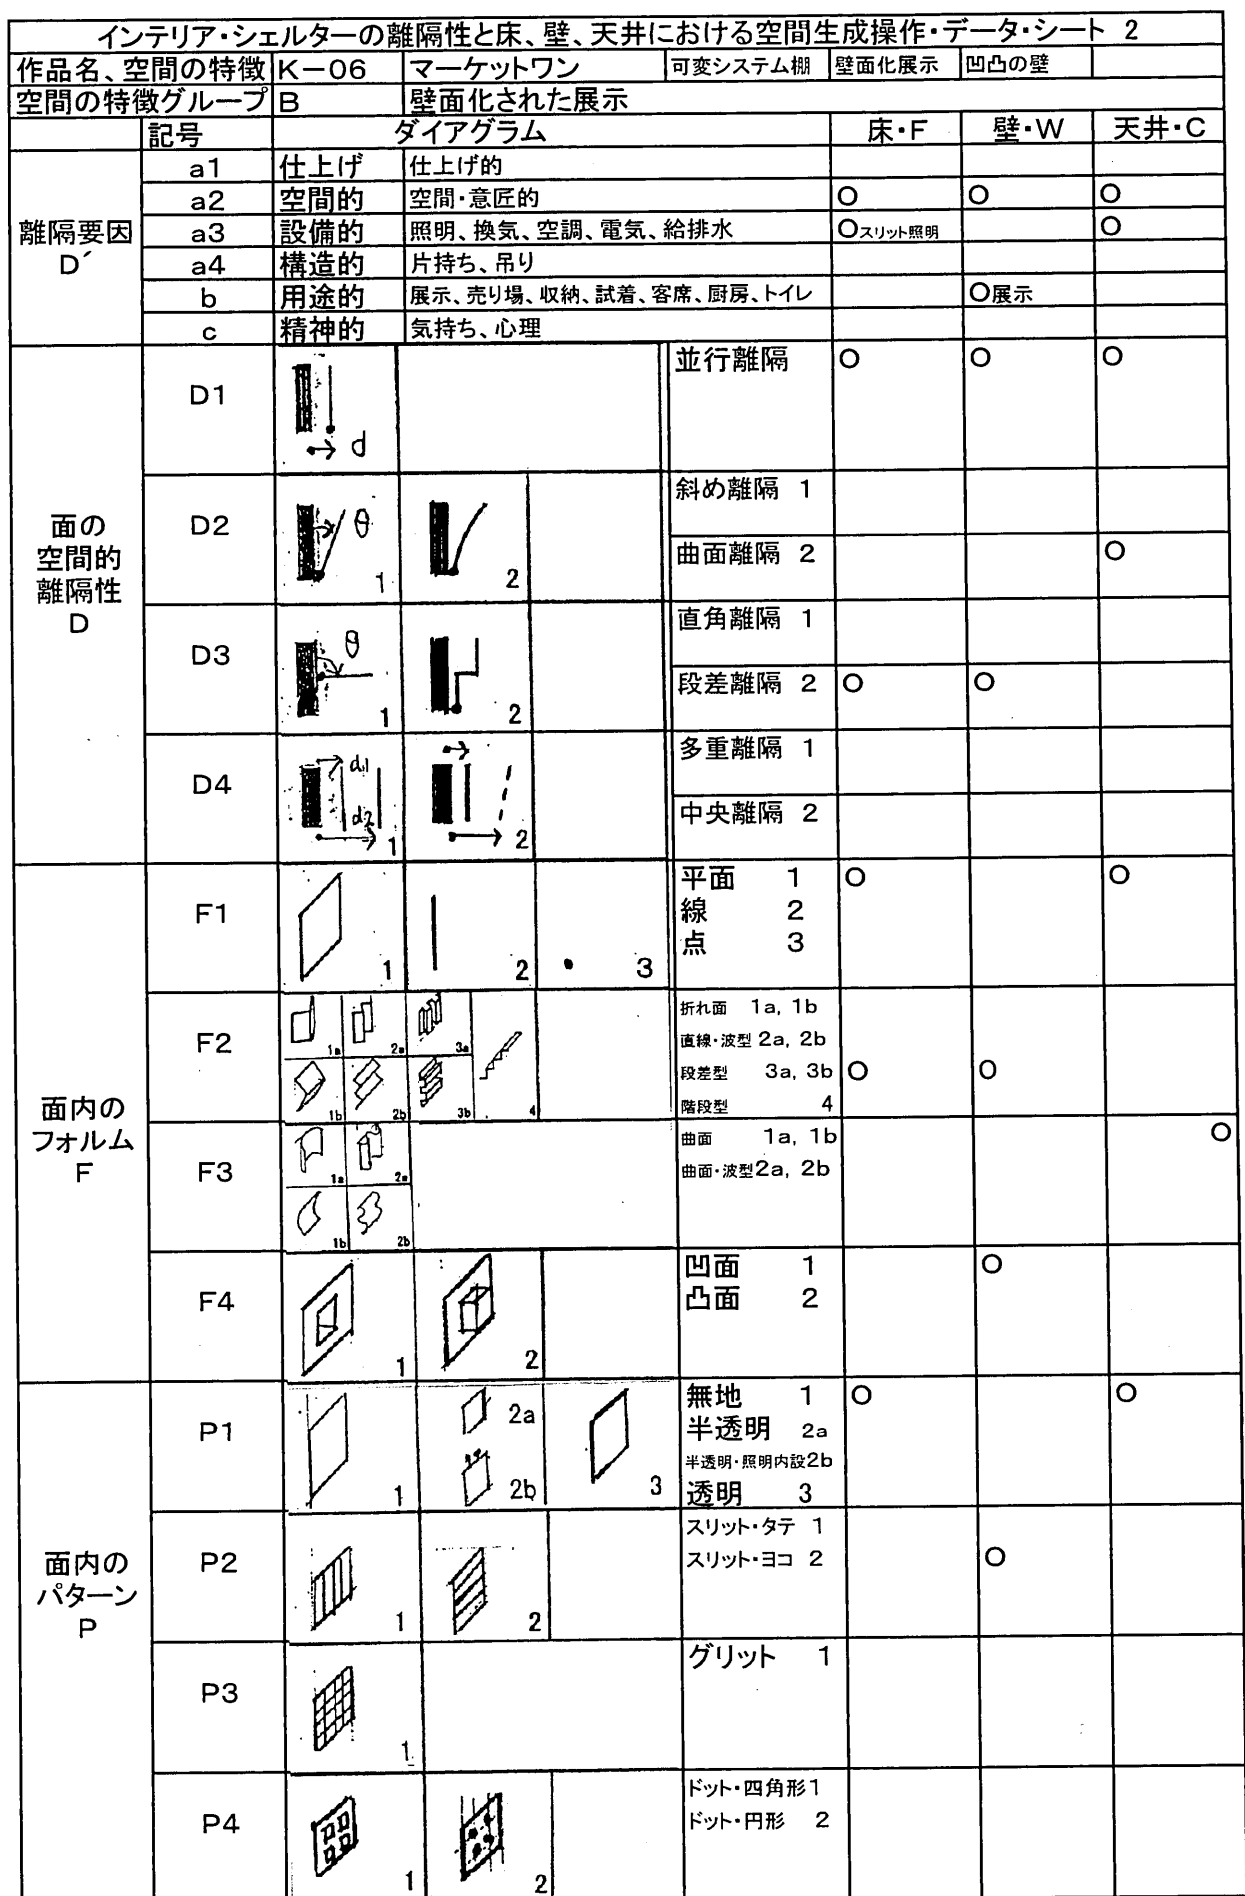 インテリア・シェルターの離隔性と床、壁、天井における空間生成操作・データ・シート 2
作品名、空間の特徴 K－06 マーケットワン 可変システム棚 壁面化展示 凹凸の壁
空間の特徴グループ B 壁面化された展示
記号 ダイアグラム 床・F 壁・W 天井・C
離隔要因 D´
a1 仕上げ 仕上げ的
a2 空間的 空間・意匠的 ○ ○ ○
a3 設備的 照明、換気、空調、電気、給排水 ○スリット照明 ○
a4 構造的 片持ち、吊り
b 用途的 展示、売り場、収納、試着、客席、厨房、トイレ ○展示
c 精神的 気持ち、心理
面の
空間的
離隔性
D
D1 d 並行離隔 ○ ○ ○
D2 θ 1 2 斜め離隔 1
曲面離隔 2 ○
D3 θ 1 2 直角離隔 1
段差離隔 2 ○ ○
D4 d1 d2 1 2 多重離隔 1
中央離隔 2
面内の
フォルム
F
F1 1 2 3 平面 1 ○ ○
線 2
点 3
F2 1a 2a 3a 折れ面 1a, 1b
直線・波型 2a, 2b
1b 2b 3b 4 段差型 3a, 3b ○ ○
階段型 4
F3 1a 2a 曲面 1a, 1b ○
1b 2b 曲面・波型2a, 2b
F4 1 2 凹面 1 ○
凸面 2
面内の
パターン
P
P1 1 2a 2b 3 無地 1 ○ ○
半透明 2a
半透明・照明内設2b
透明 3
P2 1 2 スリット・タテ 1
スリット・ヨコ 2 ○
P3 1 グリット 1
P4 1 2 ドット・四角形1
ドット・円形 2